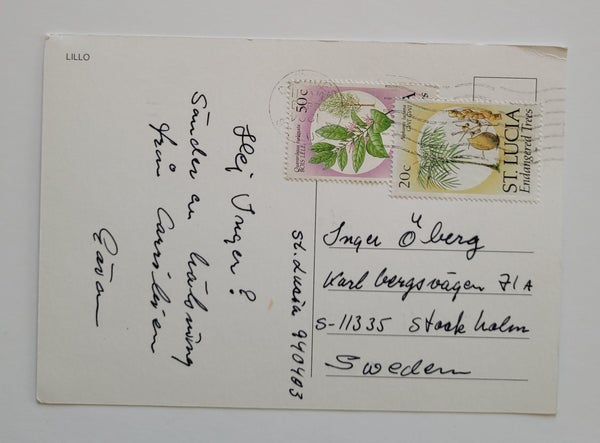 LILLO
Hej Inger!
Sänder en hälsning
från Carribien
Göran
St. Lucia 940403
50c
20c
BOIS LÉLÉ
ST. LUCIA
Endangered Trees
Inger Öberg
Karlbergsvägen 71A
S-11335 Stockholm
Sweden